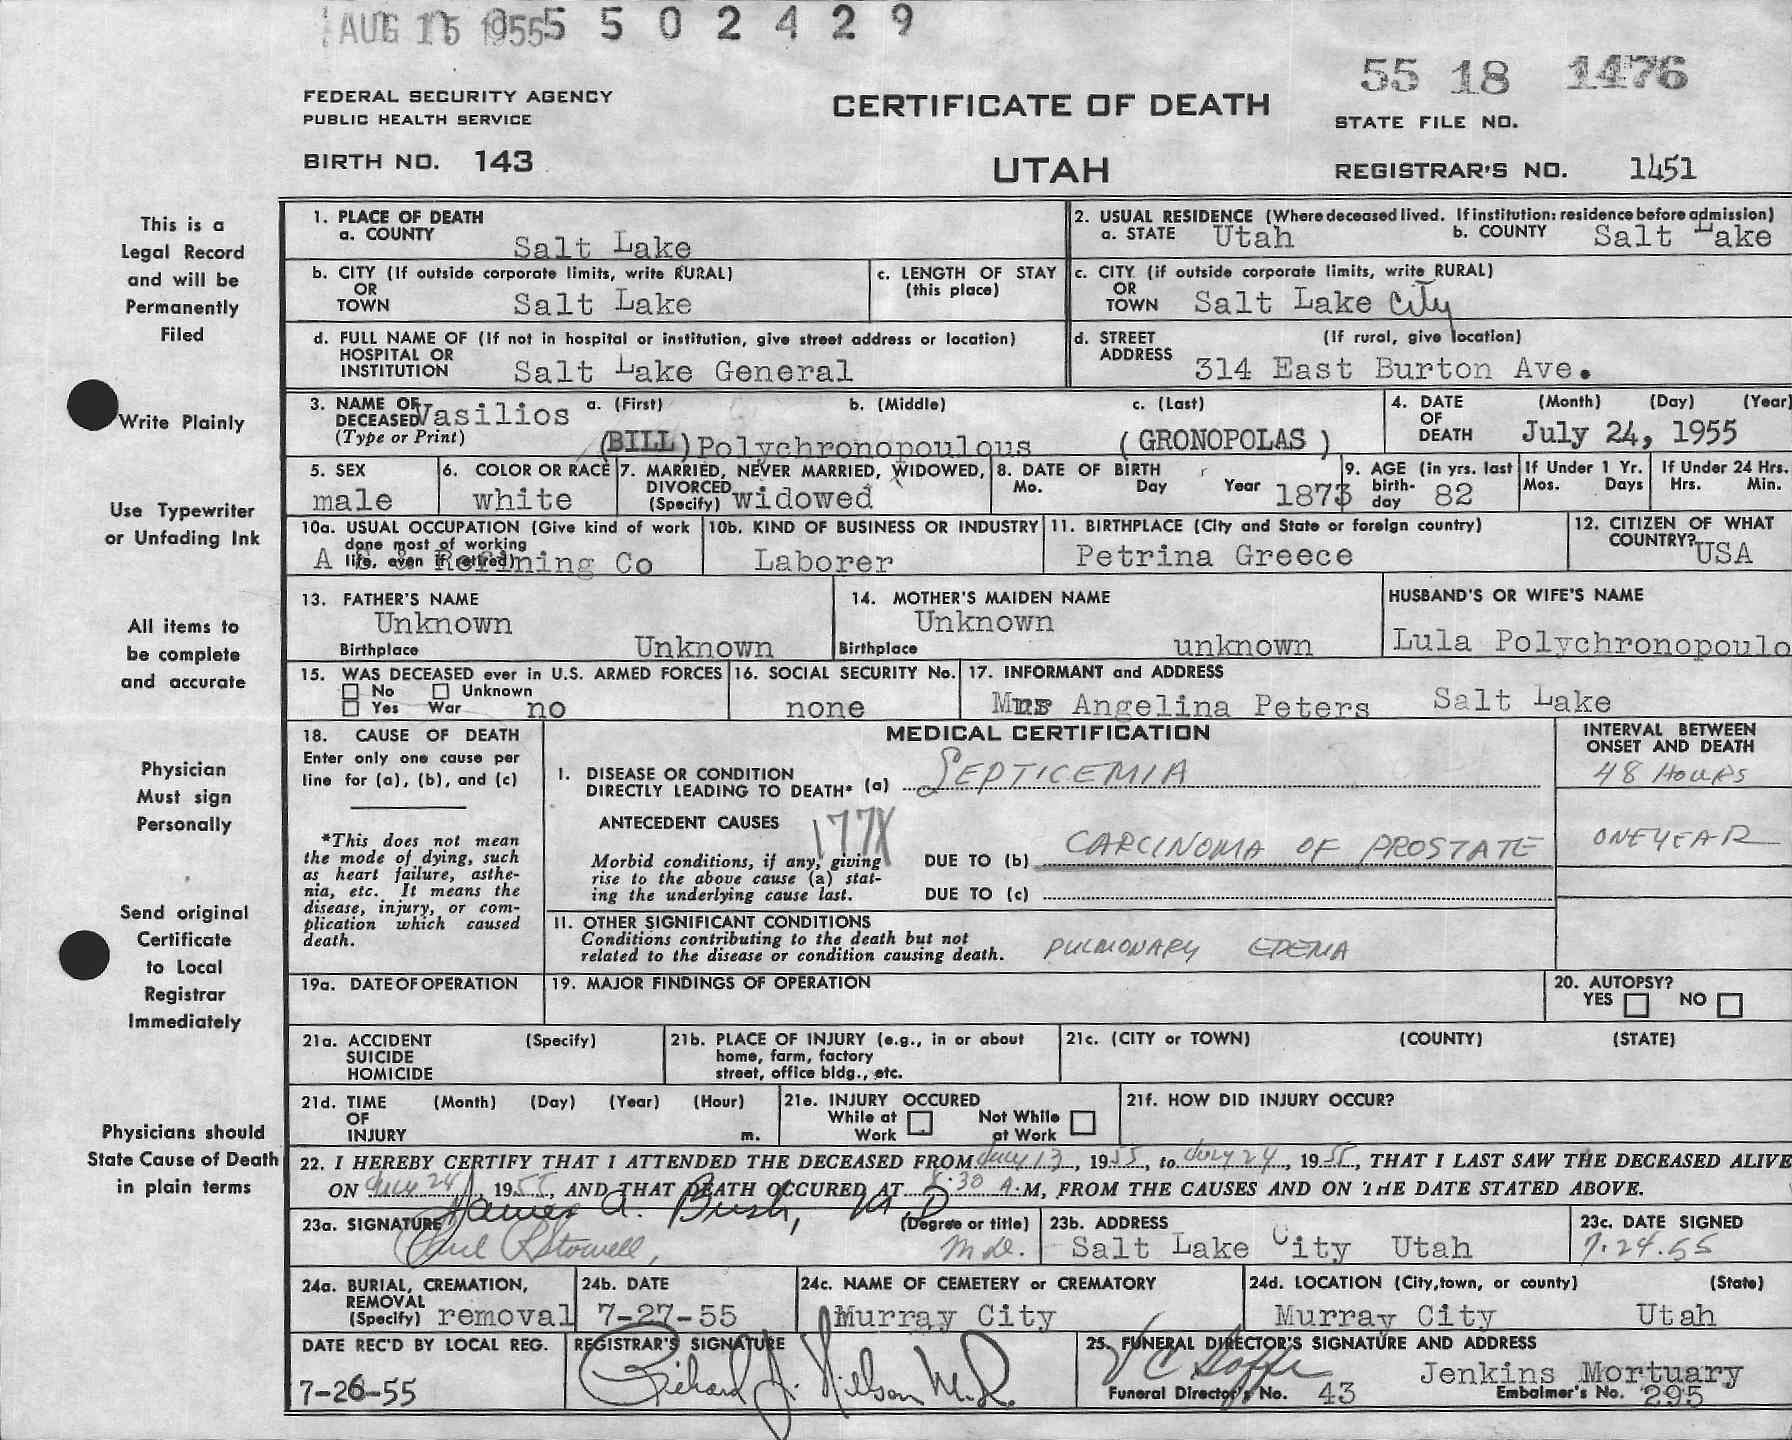 AUG 15 1955 5 5 0 2 4 2 9
55 18 1476
FEDERAL SECURITY AGENCY
PUBLIC HEALTH SERVICE
CERTIFICATE OF DEATH
STATE FILE NO.
BIRTH NO. 143
UTAH
REGISTRAR'S NO. 1451
This is a
Legal Record
and will be
Permanently
Filed
Write Plainly
Use Typewriter
or Unfading Ink
All items to
be complete
and accurate
Physician
Must sign
Personally
Send original
Certificate
to Local
Registrar
Immediately
Physicians should
State Cause of Death
in plain terms
1. PLACE OF DEATH
a. COUNTY Salt Lake
2. USUAL RESIDENCE (Where deceased lived. If institution: residence before admission)
a. STATE Utah b. COUNTY Salt Lake
b. CITY (If outside corporate limits, write RURAL)
OR
TOWN Salt Lake
c. LENGTH OF STAY
(this place)
c. CITY (if outside corporate limits, write RURAL)
OR
TOWN Salt Lake City
d. FULL NAME OF (If not in hospital or institution, give street address or location)
HOSPITAL OR
INSTITUTION Salt Lake General
d. STREET (If rural, give location)
ADDRESS 314 East Burton Ave.
3. NAME OF DECEASED Vasilios a. (First) b. (Middle) c. (Last)
(Type or Print) (BILL) Polychronopoulous (GRONOPOLAS)
4. DATE (Month) (Day) (Year)
OF
DEATH July 24, 1955
5. SEX
male
6. COLOR OR RACE
white
7. MARRIED, NEVER MARRIED, WIDOWED,
DIVORCED
(Specify) widowed
8. DATE OF BIRTH
Mo. Day Year 1873
9. AGE (in yrs. last
birth-
day 82
If Under 1 Yr.
Mos. Days
If Under 24 Hrs.
Hrs. Min.
10a. USUAL OCCUPATION (Give kind of work
done most of working
life, even if retired)
A Refining Co
10b. KIND OF BUSINESS OR INDUSTRY
Laborer
11. BIRTHPLACE (City and State or foreign country)
Petrina Greece
12. CITIZEN OF WHAT
COUNTRY? USA
13. FATHER'S NAME
Unknown
Birthplace Unknown
14. MOTHER'S MAIDEN NAME
Unknown
Birthplace unknown
HUSBAND'S OR WIFE'S NAME
Lula Polychronopoulo
15. WAS DECEASED ever in U.S. ARMED FORCES
No Unknown
Yes War no
16. SOCIAL SECURITY No.
none
17. INFORMANT and ADDRESS
Mrs Angelina Peters Salt Lake
18. CAUSE OF DEATH
Enter only one cause per
line for (a), (b), and (c)
*This does not mean
the mode of dying, such
as heart failure, asthe-
nia, etc. It means the
disease, injury, or com-
plication which caused
death.
MEDICAL CERTIFICATION
INTERVAL BETWEEN
ONSET AND DEATH
I. DISEASE OR CONDITION
DIRECTLY LEADING TO DEATH* (a) SEPTICEMIA 48 HOURS
ANTECEDENT CAUSES 177X
Morbid conditions, if any, giving
rise to the above cause (a) stat-
ing the underlying cause last.
DUE TO (b) CARCINOMA OF PROSTATE ONE YEAR
DUE TO (c)
II. OTHER SIGNIFICANT CONDITIONS
Conditions contributing to the death but not
related to the disease or condition causing death.
PULMONARY EDEMA
19a. DATE OF OPERATION
19. MAJOR FINDINGS OF OPERATION
20. AUTOPSY?
YES NO
21a. ACCIDENT (Specify)
SUICIDE
HOMICIDE
21b. PLACE OF INJURY (e.g., in or about
home, farm, factory
street, office bldg., etc.
21c. (CITY or TOWN) (COUNTY) (STATE)
21d. TIME (Month) (Day) (Year) (Hour)
OF
INJURY m.
21e. INJURY OCCURED
While at Work Not While at Work
21f. HOW DID INJURY OCCUR?
22. I HEREBY CERTIFY THAT I ATTENDED THE DECEASED FROM July 13, 1955, to July 24, 1955, THAT I LAST SAW THE DECEASED ALIVE
ON July 24, 1955, AND THAT DEATH OCCURED AT 8:30 A.M, FROM THE CAUSES AND ON THE DATE STATED ABOVE.
James A. Bush, M.D
23a. SIGNATURE (Degree or title)
Paul R Stowell, M.D.
23b. ADDRESS
Salt Lake City Utah
23c. DATE SIGNED
7.24.55
24a. BURIAL, CREMATION,
REMOVAL
(Specify) removal
24b. DATE
7-27-55
24c. NAME OF CEMETERY or CREMATORY
Murray City
24d. LOCATION (City, town, or county) (State)
Murray City Utah
DATE REC'D BY LOCAL REG.
7-26-55
REGISTRAR'S SIGNATURE
Richard J. Nielson M.D.
25. FUNERAL DIRECTOR'S SIGNATURE AND ADDRESS
Jenkins Mortuary
Funeral Director's No. 43 Embalmer's No. 295